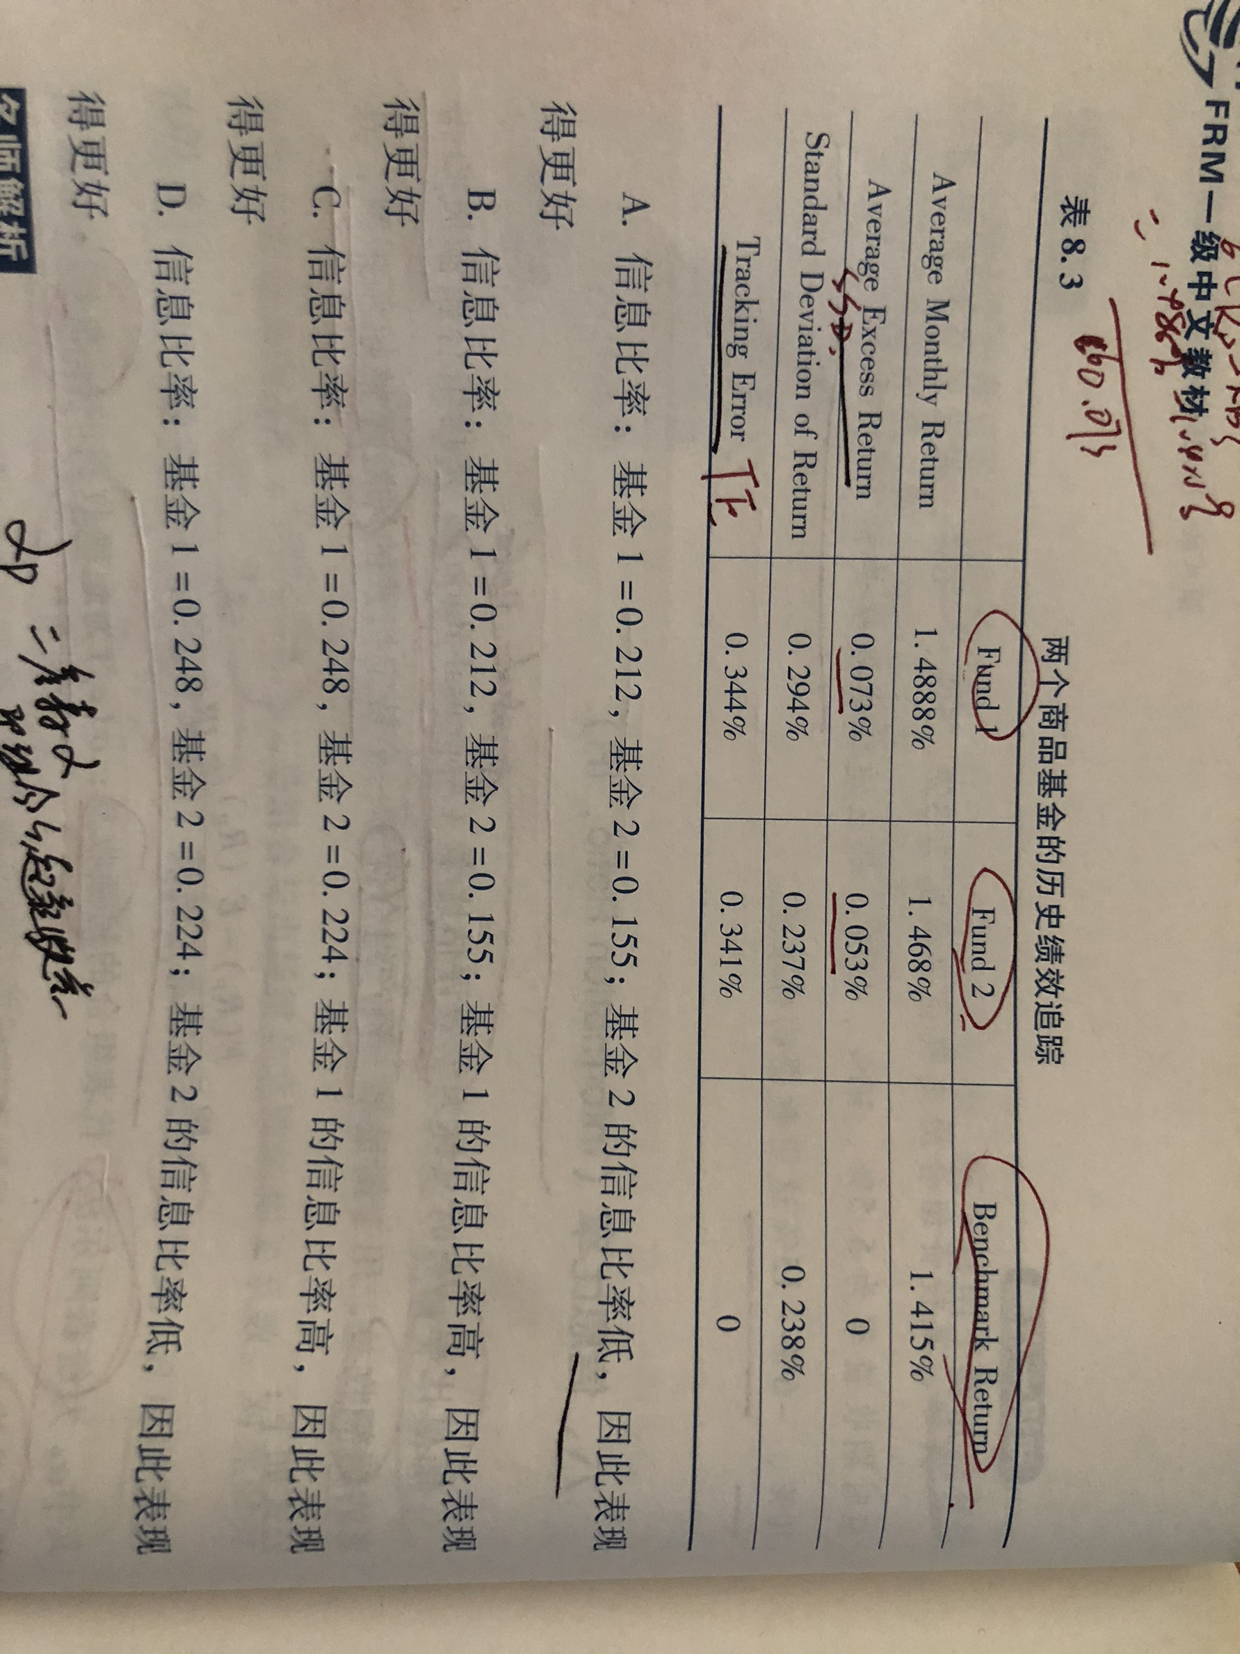 FRM一级中文教材
表 8.3
两个商品基金的历史绩效追踪
Fund 1 Fund 2 Benchmark Return
Average Monthly Return 1.4888% 1.468% 1.415%
Average Excess Return 0.073% 0.053% 0
Standard Deviation of Return 0.294% 0.237% 0.238%
Tracking Error TE 0.344% 0.341% 0
A. 信息比率：基金 1 =0.212，基金 2 =0.155；基金 2 的信息比率低，因此表现
得更好
B. 信息比率：基金 1 =0.212，基金 2 =0.155；基金 1 的信息比率高，因此表现
得更好
C. 信息比率：基金 1 =0.248，基金 2 =0.224；基金 1 的信息比率高，因此表现
得更好
D. 信息比率：基金 1 =0.248，基金 2 =0.224；基金 2 的信息比率低，因此表现
得更好
名师解析